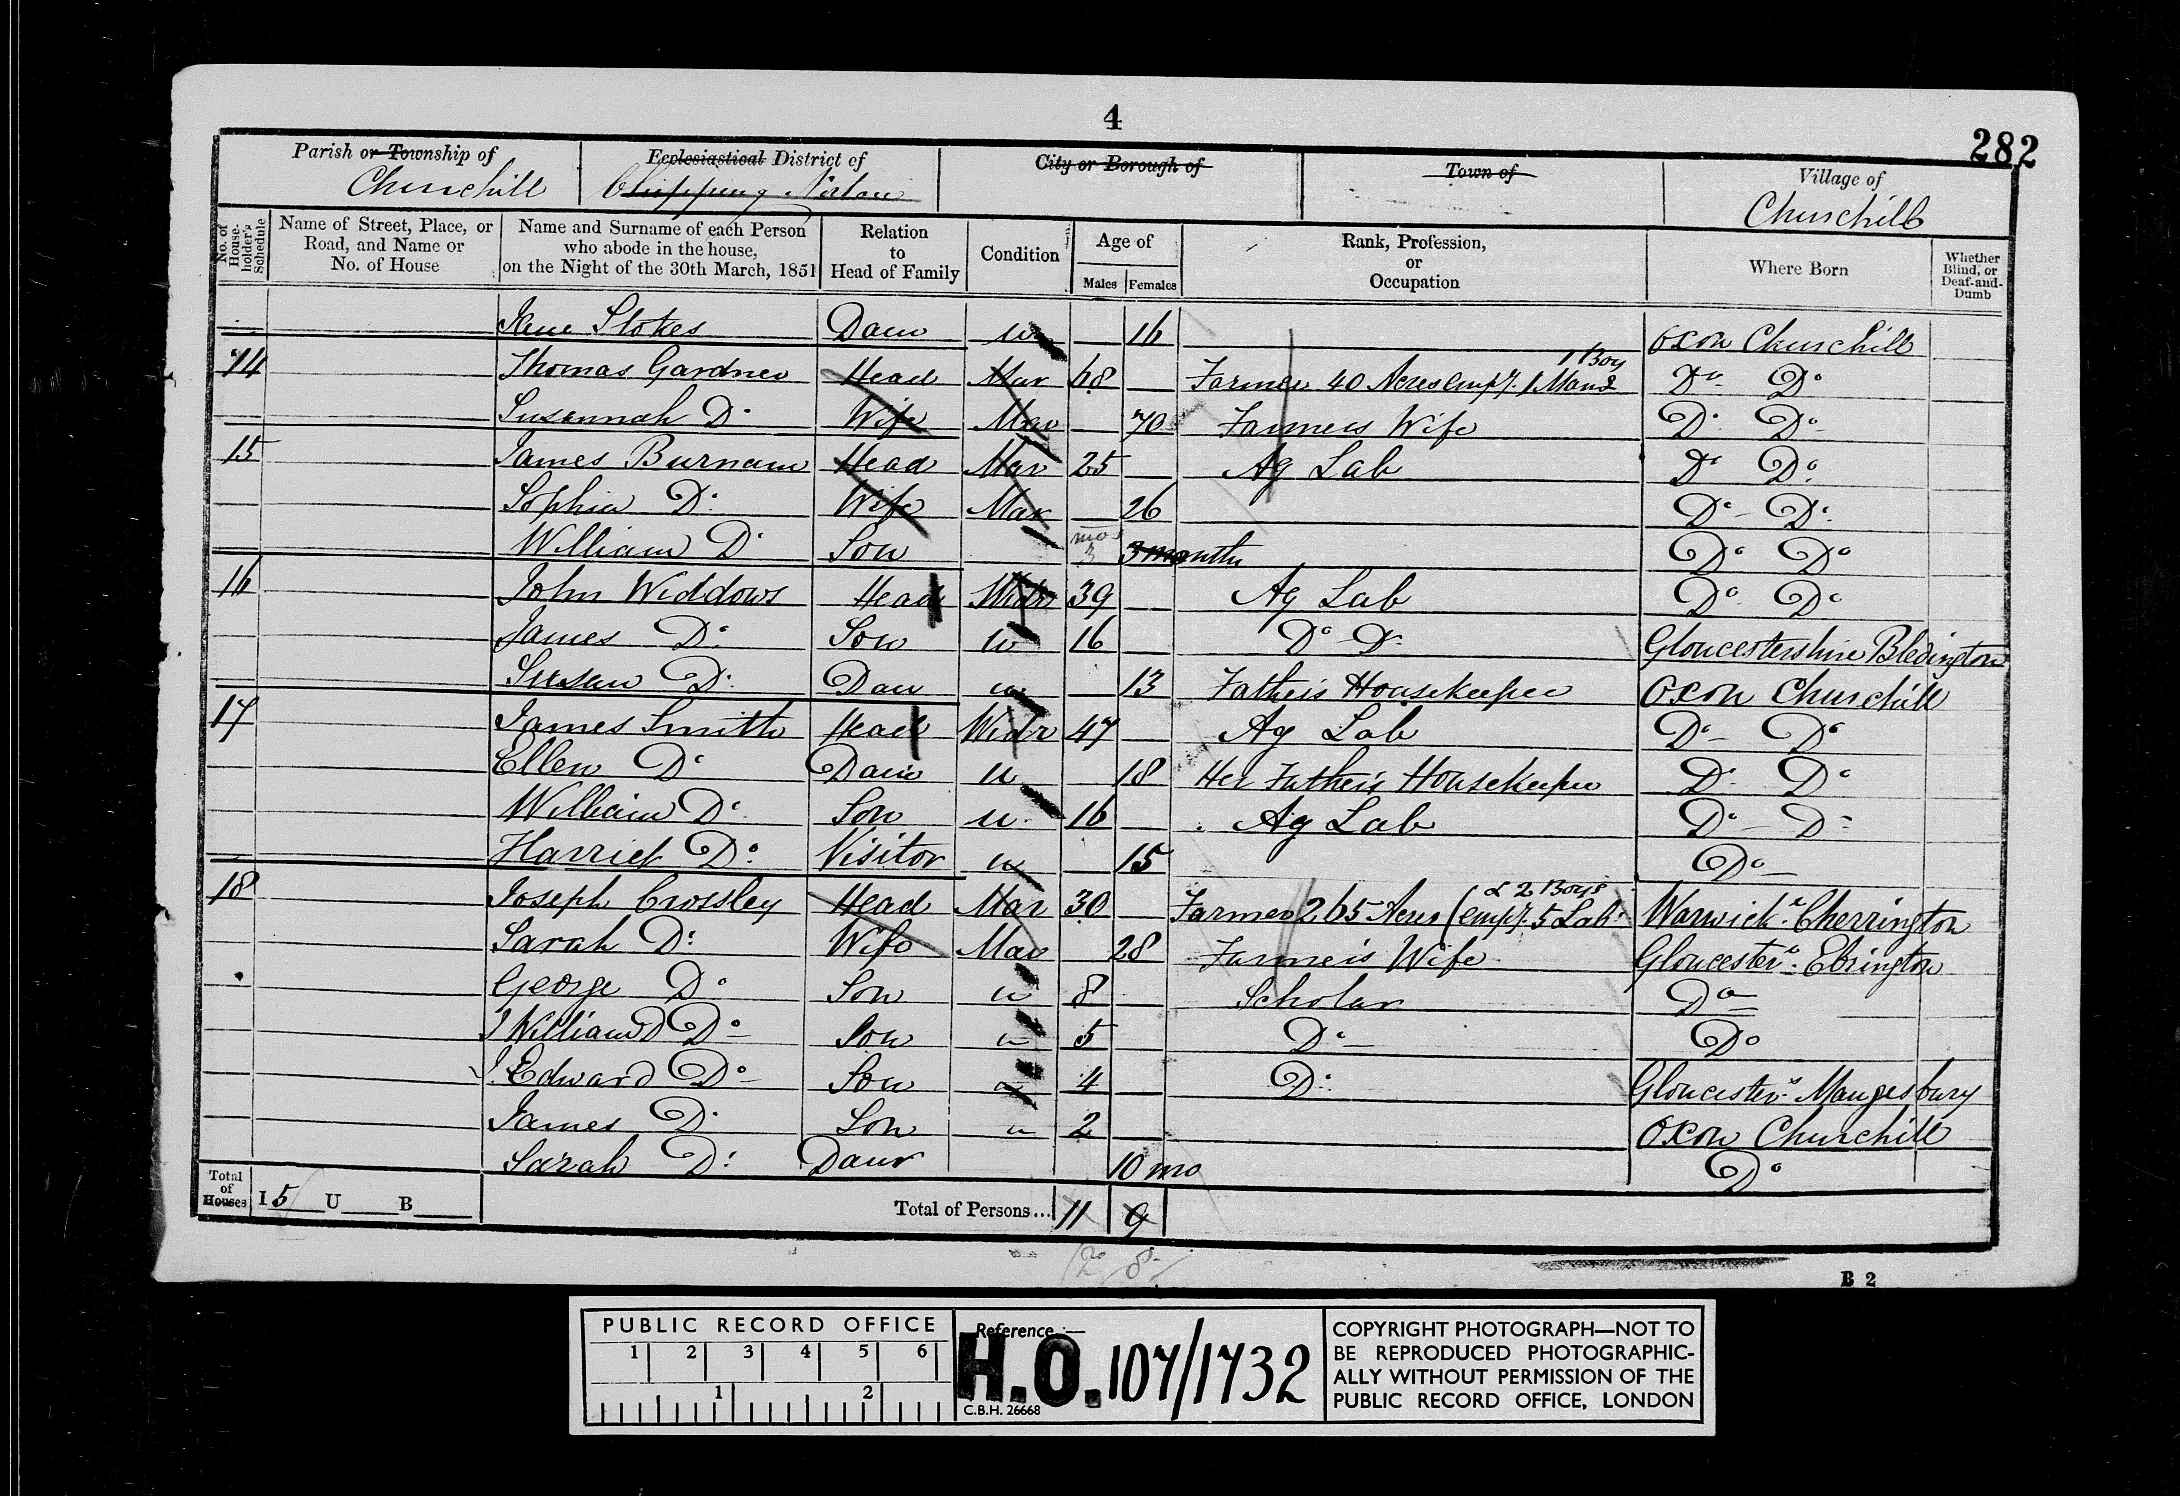 4
282
Parish or Township of
Churchill
Ecclesiastical District of
Chipping Norton
City or Borough of
Town of
Village of
Churchill
No. of House-holder's Schedule
Name of Street, Place, or Road, and Name or No. of House
Name and Surname of each Person who abode in the house, on the Night of the 30th March, 1851
Relation to Head of Family
Condition
Age of
Males Females
Rank, Profession, or Occupation
Where Born
Whether Blind, or Deaf-and-Dumb
Jane Stokes Daur u 16 Oxon Churchill
14 Thomas Gardner Head Mar 68 Farmer 40 Acres empy. 1 Man & 1 Boy Do Do
Susannah Do Wife Mar 70 Farmers Wife Do Do
15 James Burnam Head Mar 25 Ag Lab Do Do
Sophia Do Wife Mar 26 Do Do
William Do Son mo 3 3 months Do Do
16 John Widdows Head Widr 39 Ag Lab Do Do
James Do Son u 16 Do Do Gloucestershire Bledington
Susan Do Dau u 13 Father's Housekeeper Oxon Churchill
17 James Smith Head Widr 47 Ag Lab Do Do
Ellen Do Daur u 18 Her Father's Housekeeper Do Do
William Do Son u 16 Ag Lab Do Do
Harriet Do Visitor u 15 Do
18 Joseph Crossley Head Mar 30 Farmer 265 Acres (empy. 5 Lab. & 2 Boys Warwicks. Cherrington
Sarah Do Wife Mar 28 Farmer's Wife Glouceste'rs. Ebrington
George Do Son u 8 Scholar Do
J William Do Son u 5 Do Do
J. Edward Do Son u 4 Do Gloucesters. Maugesbury
James Do Son u 2 Oxon Churchill
Sarah Do Daur 10 mo Do
Total of Houses I 5 U B
Total of Persons... 11 9
12 8
B 2
PUBLIC RECORD OFFICE
1 2 3 4 5 6
1 2
Reference :—
H.O. 107/1732
C.B.H. 26668
COPYRIGHT PHOTOGRAPH—NOT TO
BE REPRODUCED PHOTOGRAPHIC-
ALLY WITHOUT PERMISSION OF THE
PUBLIC RECORD OFFICE, LONDON